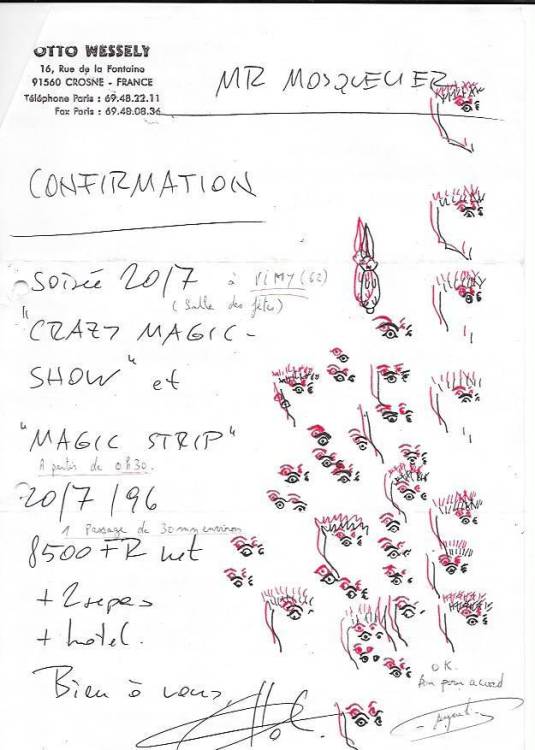 OTTO WESSELY
16, Rue de la Fontaine
91560 CROSNE - FRANCE
Téléphone Paris : 69.48.22.11
Fax Paris : 69.48.08.36
MR MOSQUELIER
CONFIRMATION
SOIRÉE 20/7 à VIMY (62)
(Salle des fêtes)
"CRAZY MAGIC-
SHOW" et
"MAGIC STRIP"
A partir de 0h30.
20/7/96
1 passage de 30 mm environ
8500 FR net
+ 2 repas
+ hotel.
Bien à vous,
O.K.
Bon pour accord